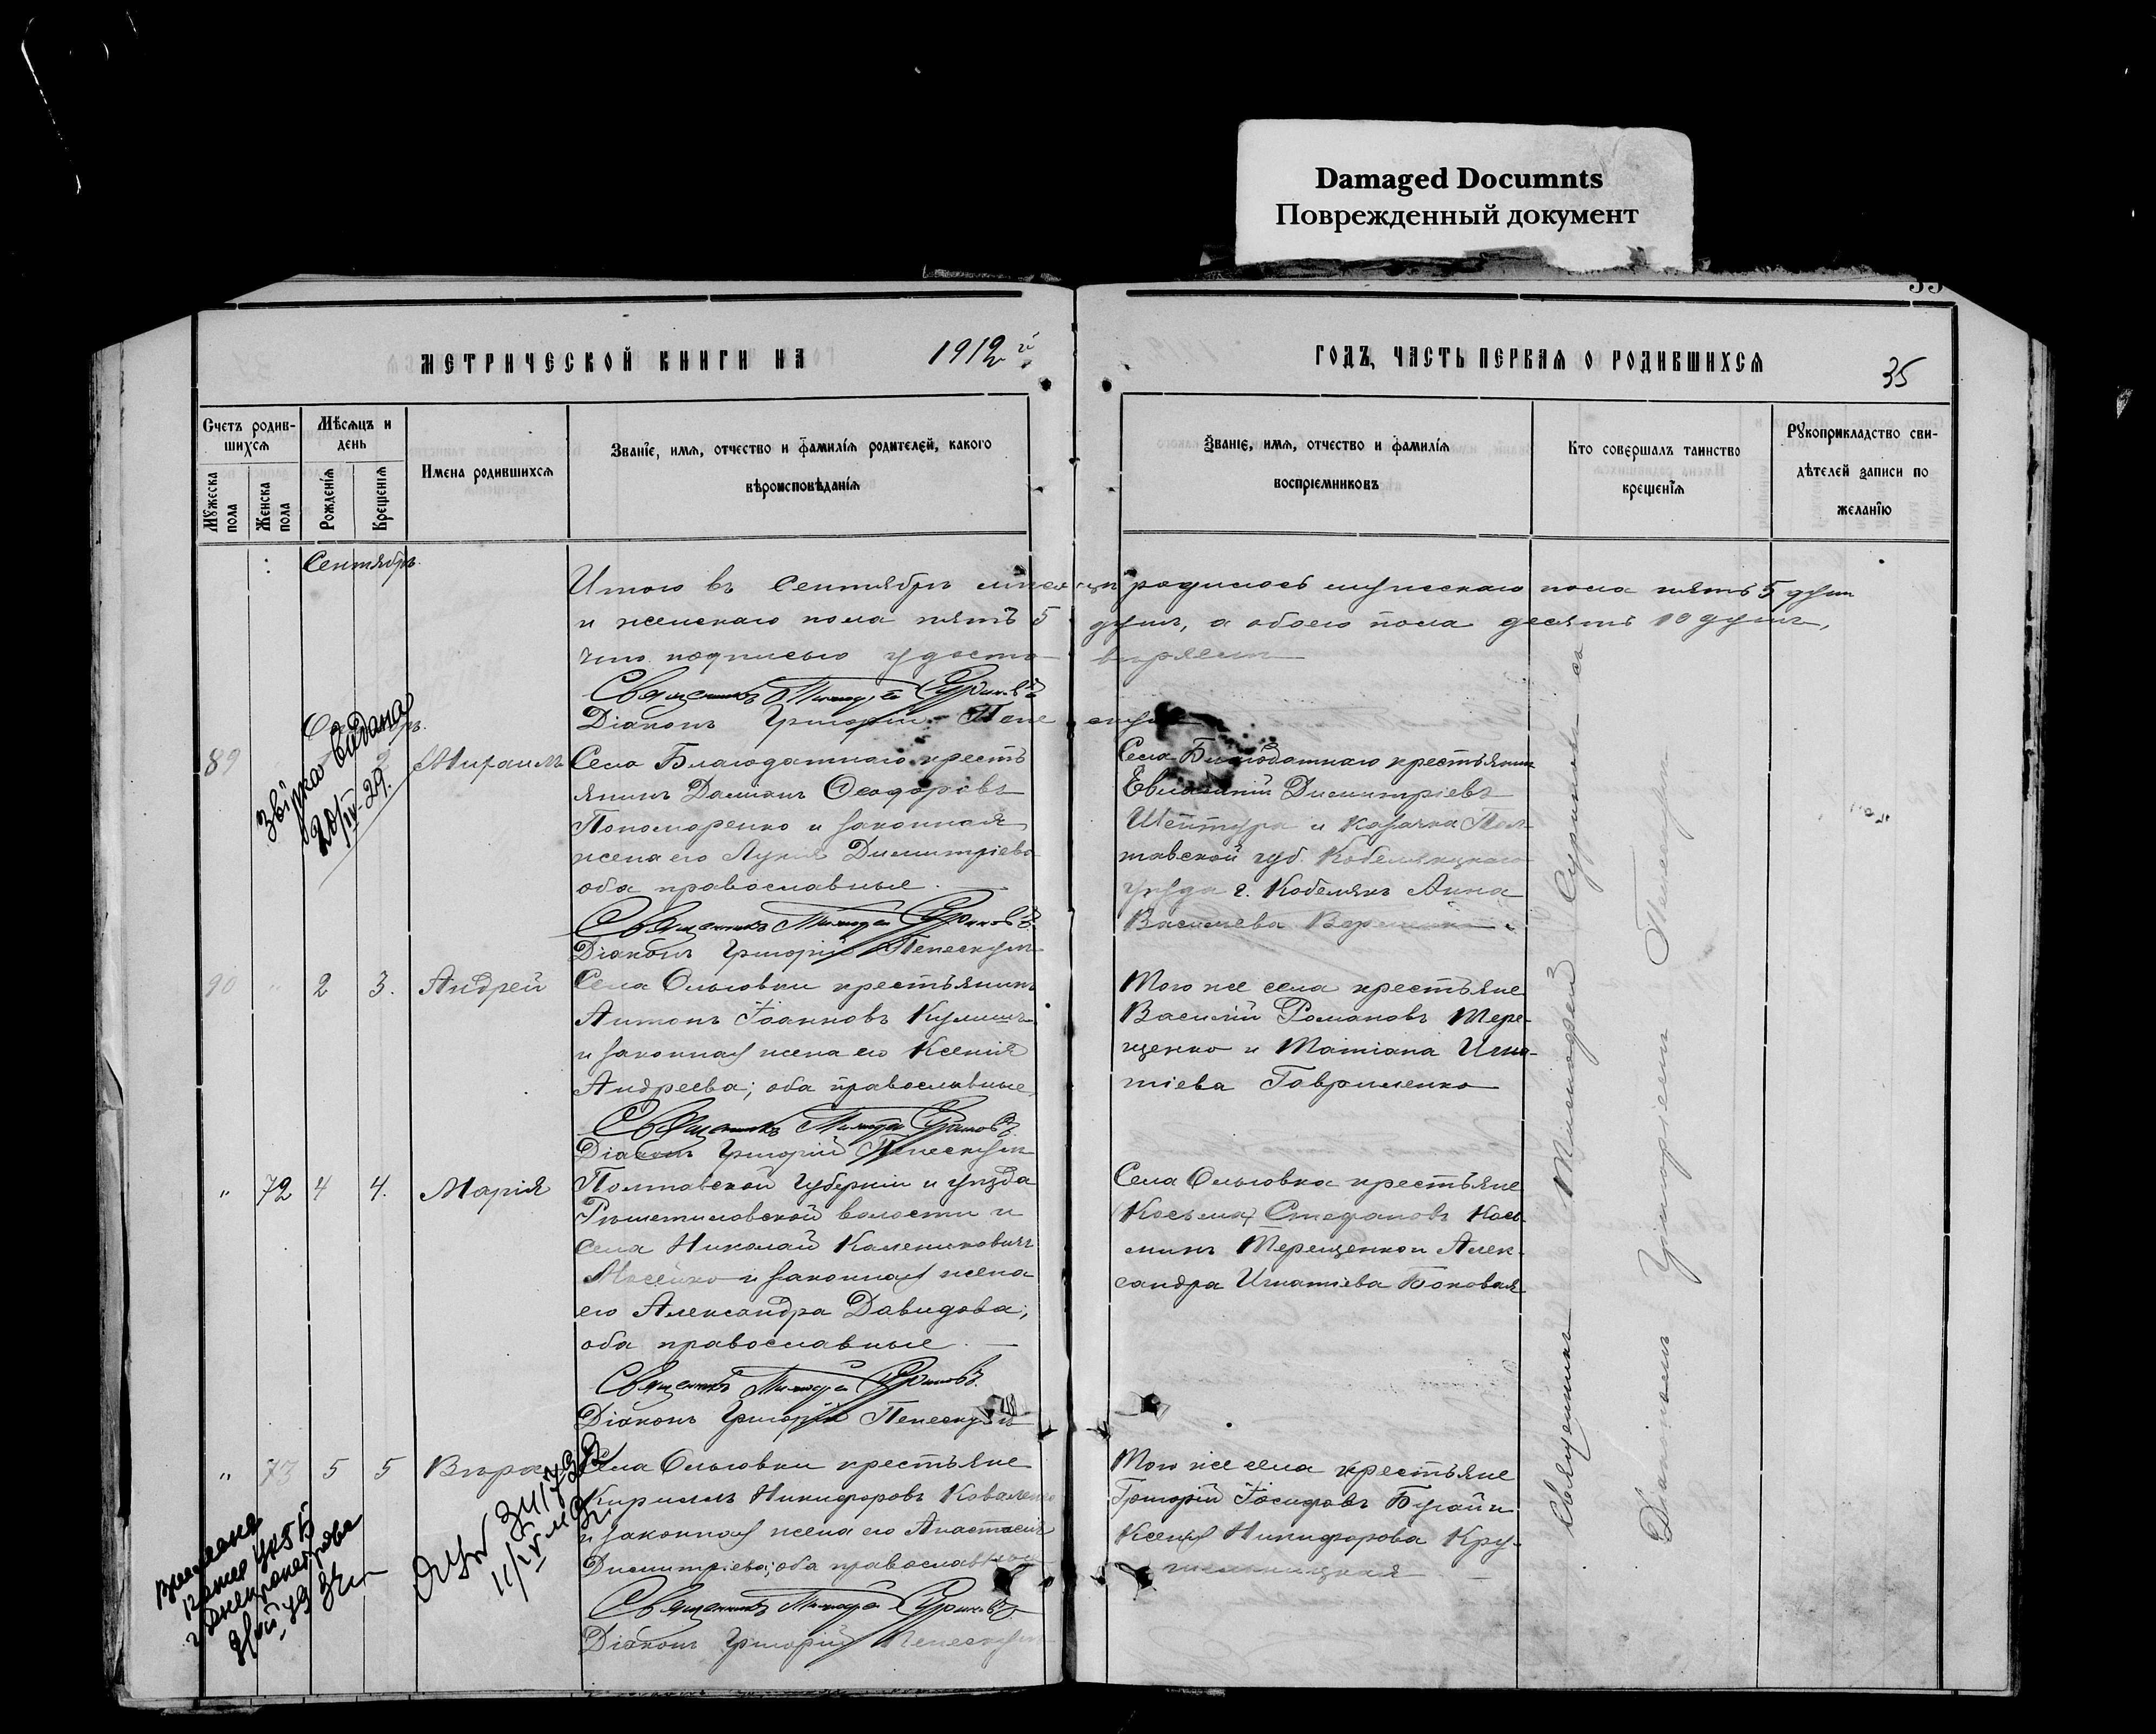 Damaged Documnts
Поврежденный документ
МЕТРИЧЕСКОЙ КНИГИ НА 1912й
ГОДЪ, ЧАСТЬ ПЕРВАЯ О РОДИВШИХСЯ
35
Счетъ родив-
шихся
Мѣсяцъ и
день
Мужеска
пола
Женска
пола
Рожденія
Крещенія
Имена родившихся
Званіе, имя, отчество и фамилія родителей, какого
вѣроисповѣданія
Званіе, имя, отчество и фамилія
воспріемниковъ
Кто совершалъ таинство
крещенія
Рукоприкладство сви-
дѣтелей записи по
желанію
Сентябрь
Итого въ Сентябрѣ мѣсяцѣ родилось мужескаго пола пять 5 душъ
и женскаго пола пять 5 душъ, а обоего пола десять 10 душъ,
что подписью удостовѣряемъ
Священникъ Тимофей Суриновъ
Діаконъ Григорій Пепескулъ
звірка видана
20/IV-29.
89
2
Михаилъ
Села Благодатнаго кресть
янинъ Даміанъ Ѳеодоровъ
Пономаренко и законная
жена его Лукія Димитріева
оба православные.
Священникъ Тимофей Суриновъ
Діаконъ Григорій Пепескулъ
Села Благодатнаго крестьянинъ
Евлампій Димитріевъ
Шептура и козачка Пол-
тавской губ. Кобелякскаго
уѣзда г. Кобелякъ Анна
Васильева
90 " 2 3. Андрей
Села Ольговки крестьянинъ
Антонъ Іоанновъ Кулишъ
и законная жена его Ксенія
Андреева; оба православные
Священникъ Тимофей Суриновъ
Діаконъ Григорій Пепескулъ
Того же села крестьяне
Василій Романовъ Тере-
щенко и Татіана Игна-
тіева Гавриленко
" 72 4 4. Марія
Полтавской губерніи и уѣзда
Рѣшетиловской волости и
села Николай Калениковичъ
Мосейко и законная жена
его Александра Давидова;
оба православные.
Священникъ Тимофей Суриновъ
Діаконъ Григорій Пепескулъ
Села Ольговка крестьяне
Косьма Стефановъ Кось-
минъ Терещенко и Алек-
сандра Игнатіева Боковая
" 73 5 5 Вѣра
Села Ольговки крестьяне
Кириллъ Никифоровъ Коваленко
и законная жена его Анастасія
Димитріева; оба православные
Священникъ Тимофей Суриновъ
Діаконъ Григорій Пепескулъ
Того же села крестьяне
Григорій Іосифовъ Бугай и
Ксенія Никифорова Кру-
11/IV
Священникъ Тимофей Суриновъ съ
Діакономъ Григоріемъ Пепескулъ